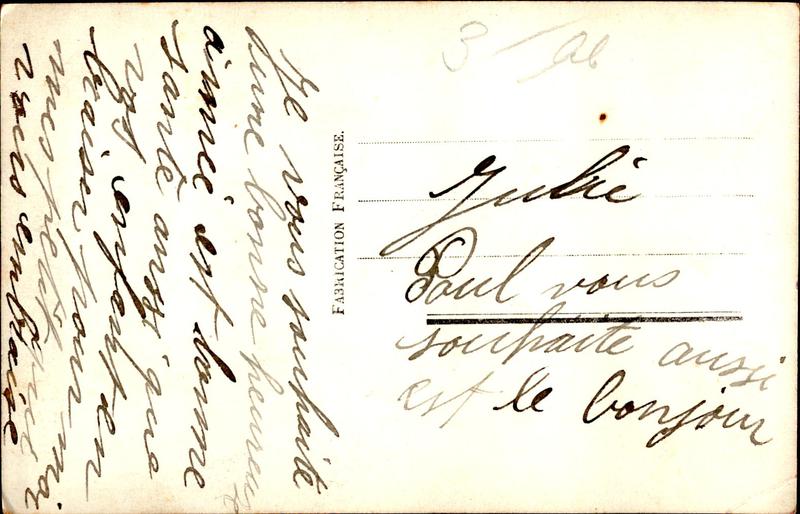 Je vous souhaite
une bonne heureuse
année est bonne
santé aussi qua
vos enfant en
baiser pour moi
mes petit
vous embrasse
FABRICATION FRANÇAISE.
Julie
Paul vous
souhaite aussi
est le bonjour